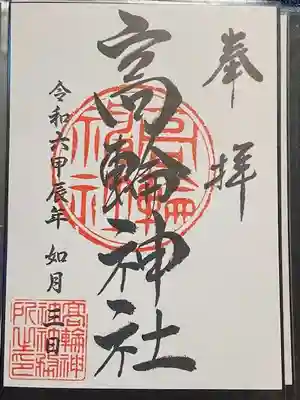 奉拝
高輪神社
令和六甲辰年 如月 三日
高輪神社
高輪神
社神璽
所之印